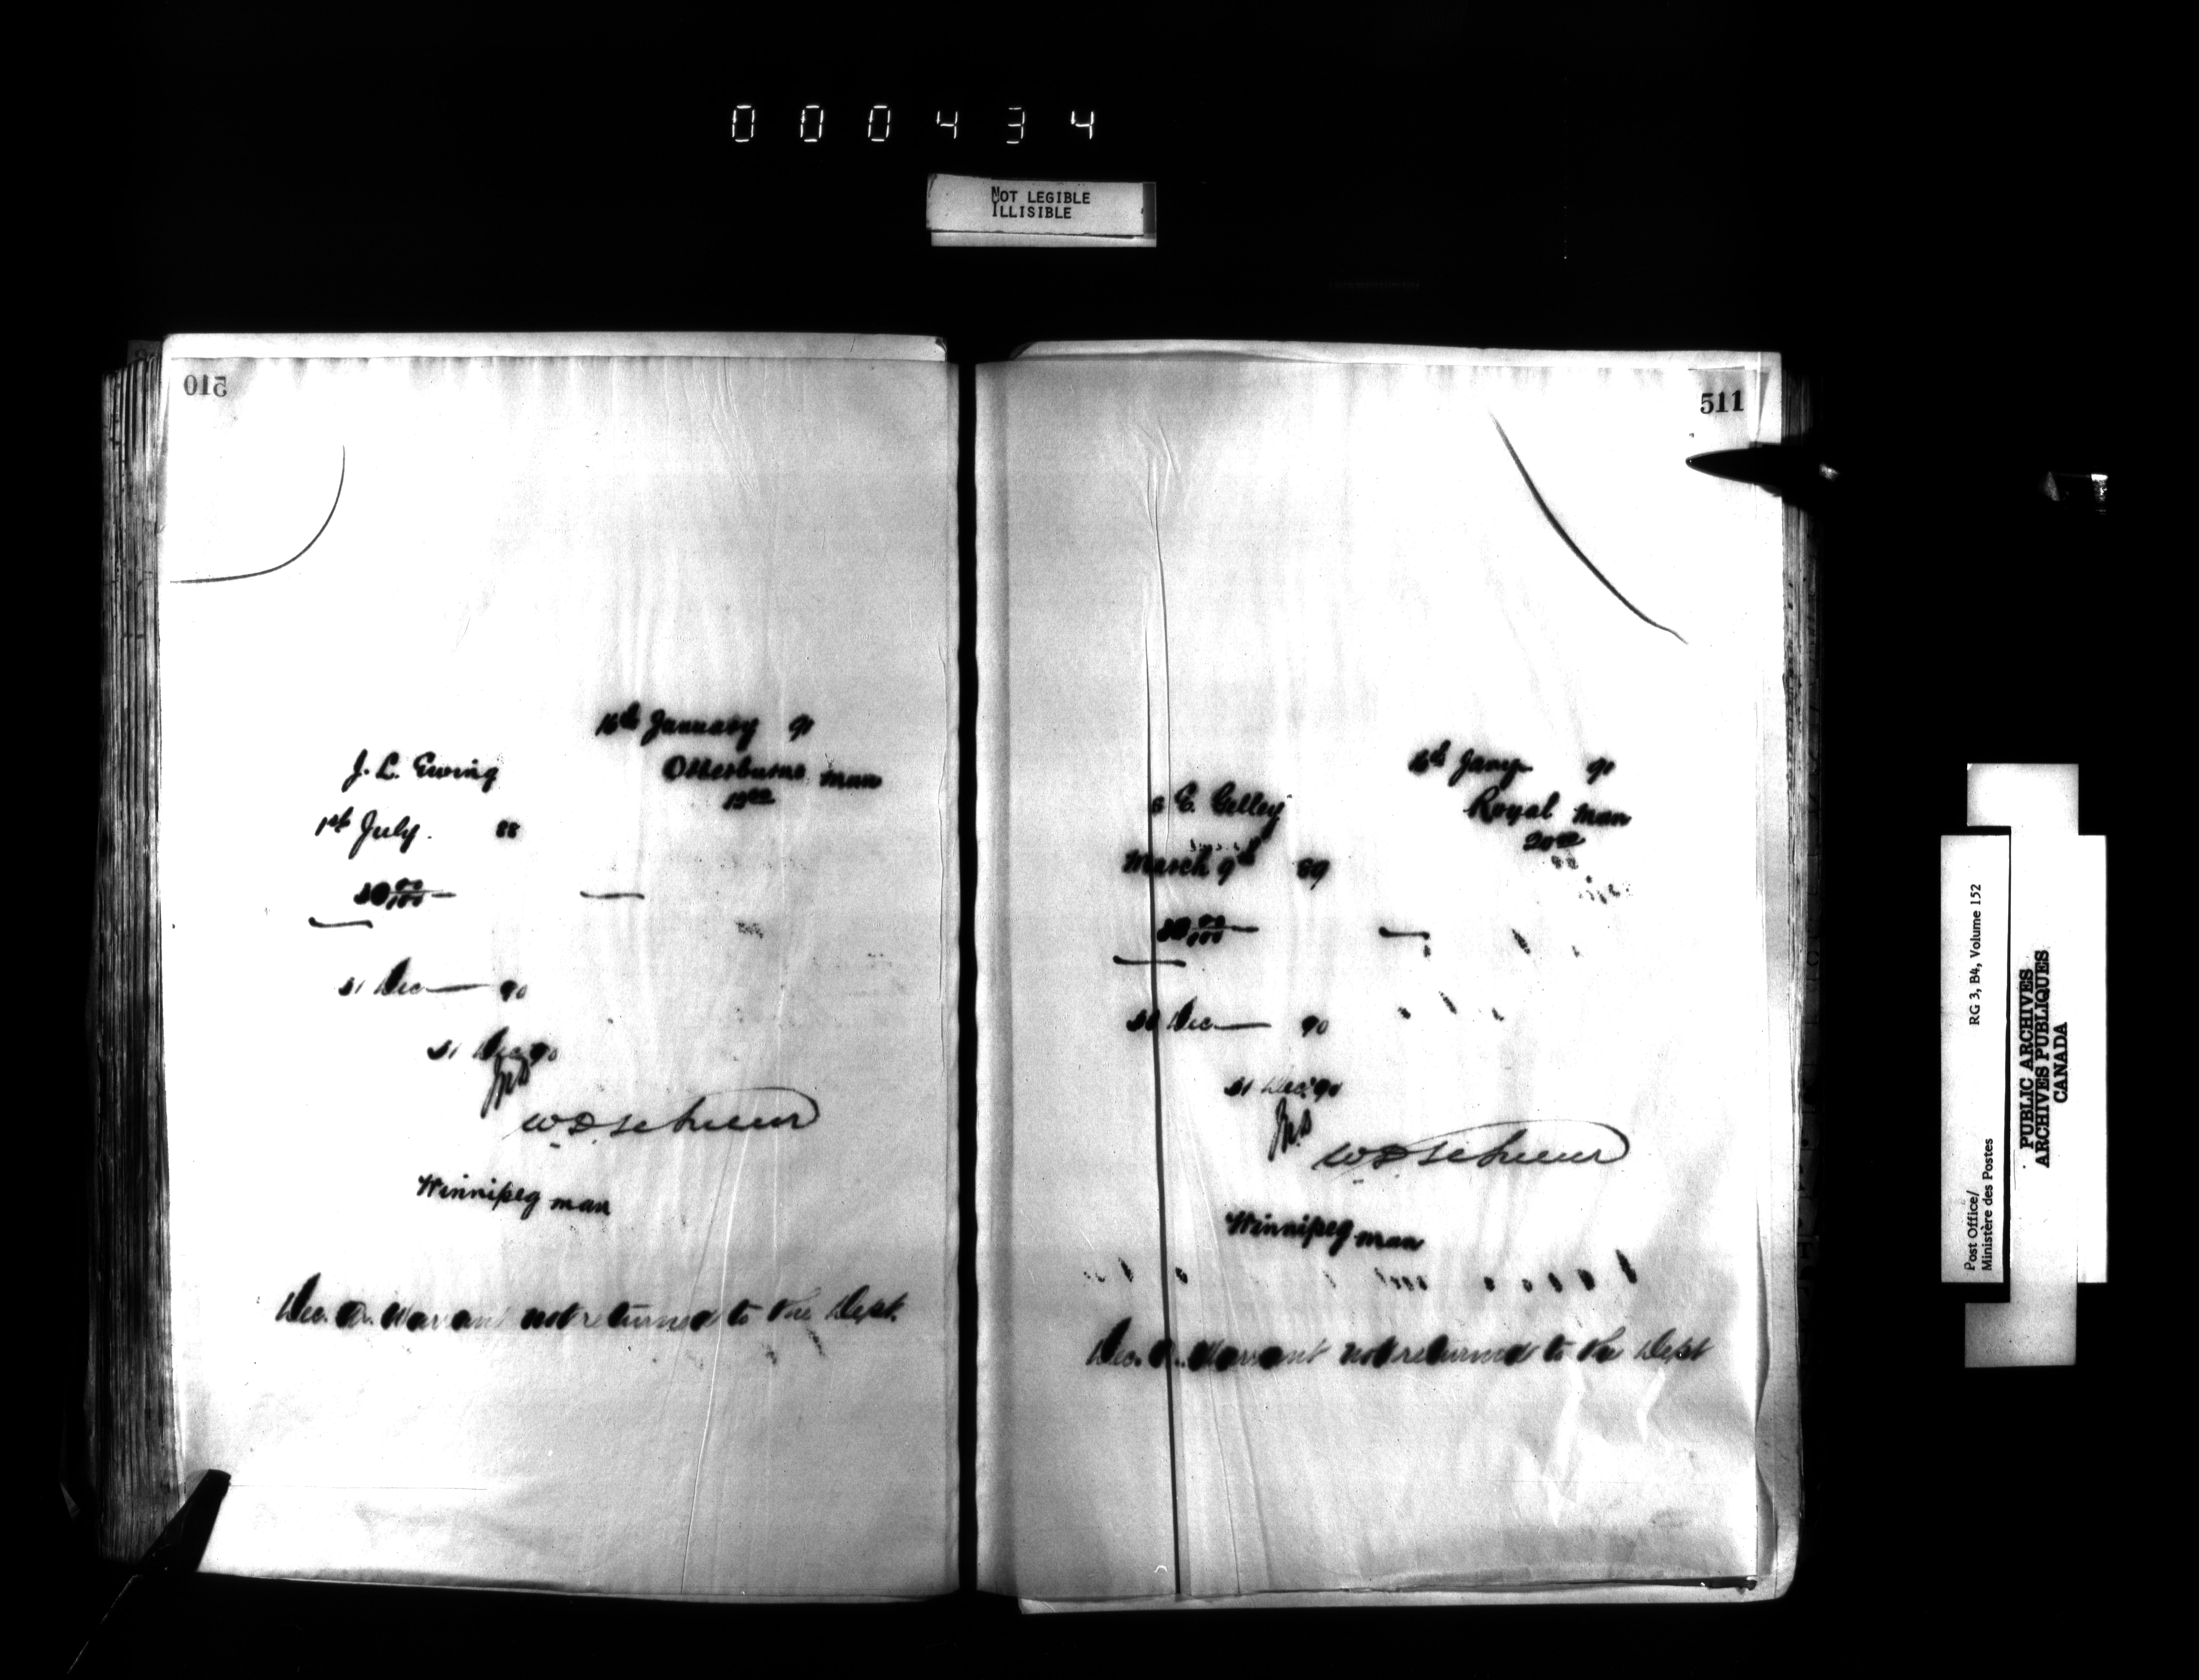 000434
NOT LEGIBLE
ILLISIBLE
510
16th January 91
J. L. Ewing
Otterburne Man
1st July. 88
31 Dec 90
31 Dec 90
Winnipeg man
Dec. Qr. Warrant not returned to the Dept.
511
16th Jany 91
E. Gelley
Royal Man
20 00
March 9th 89
31 Dec 90
31 Dec. 90
Winnipeg man
Dec. Qr. Warrant not returned to the Dept
Post Office/ RG 3, B4, Volume 152
Ministère des Postes
PUBLIC ARCHIVES
ARCHIVES PUBLIQUES
CANADA